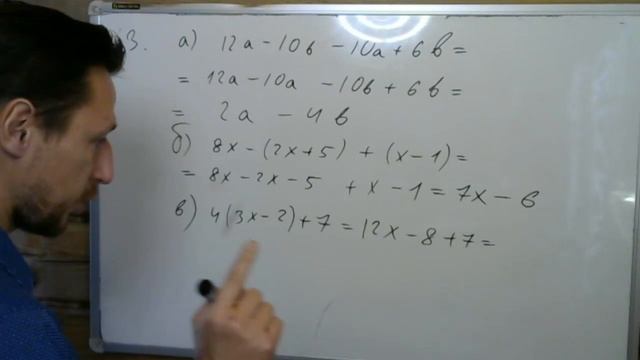 3. а) 12a - 10b - 10a + 6b =
= 12a - 10a - 10b + 6b =
= 2a - 4b
б) 8x - (2x + 5) + (x - 1) =
= 8x - 2x - 5 + x - 1 = 7x - 6
в) 4(3x - 2) + 7 = 12x - 8 + 7 =